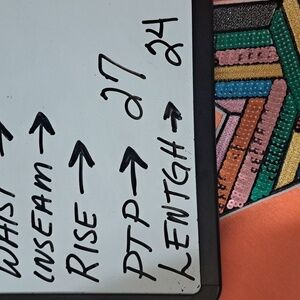 WAIST →
INSEAM →
RISE →
PTP → 27
LENTGH → 24